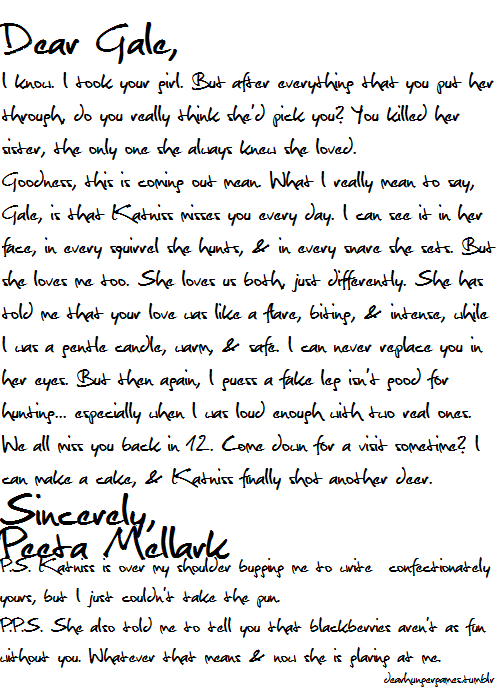 Dear Gale,
I know. I took your girl. But after everything that you put her
through, do you really think she'd pick you? You killed her
sister, the only one she always knew she loved.
Goodness, this is coming out mean. What I really mean to say,
Gale, is that Katniss misses you every day. I can see it in her
face, in every squirrel she hunts, & in every snare she sets. But
she loves me too. She loves us both, just differently. She has
told me that your love was like a flare, biting, & intense, while
I was a gentle candle, warm, & safe. I can never replace you in
her eyes. But then again, I guess a fake leg isn't good for
hunting... especially when I was loud enough with two real ones.
We all miss you back in 12. Come down for a visit sometime? I
can make a cake, & Katniss finally shot another deer.
Sincerely,
Peeta Mellark
P.S. Katniss is over my shoulder bugging me to write confectionately
yours, but I just couldn't take the pun.
P.P.S. She also told me to tell you that blackberries aren't as fun
without you. Whatever that means & now she is glaring at me.
dearhungergames.tumblr